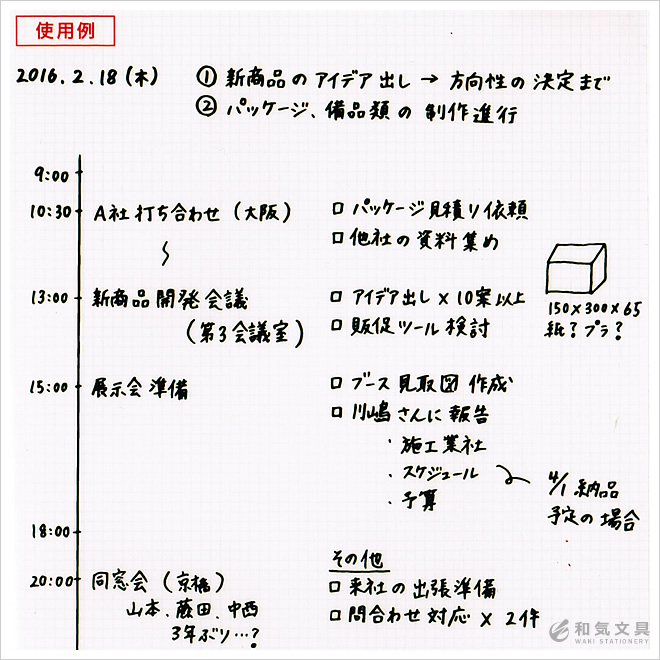 使用例
2016.2.18(木) ① 新商品のアイデア出し → 方向性の決定まで
② パッケージ、備品類の制作進行
9:00
10:30 A社打ち合わせ (大阪)
□ パッケージ見積り依頼
□ 他社の資料集め
13:00 新商品開発会議
(第3会議室)
□ アイデア出し×10案以上
□ 販促ツール検討
150×300×65
紙? プラ?
15:00 展示会準備
□ ブース見取図作成
□ 川嶋さんに報告
・施工業社
・スケジュール
・予算
4/1 納品
予定の場合
18:00
20:00 同窓会 (京橋)
山本、藤田、中西
3年ぶり…?
その他
□ 来社の出張準備
□ 問合わせ対応 × 2件
和気文具
WAKI STATIONERY